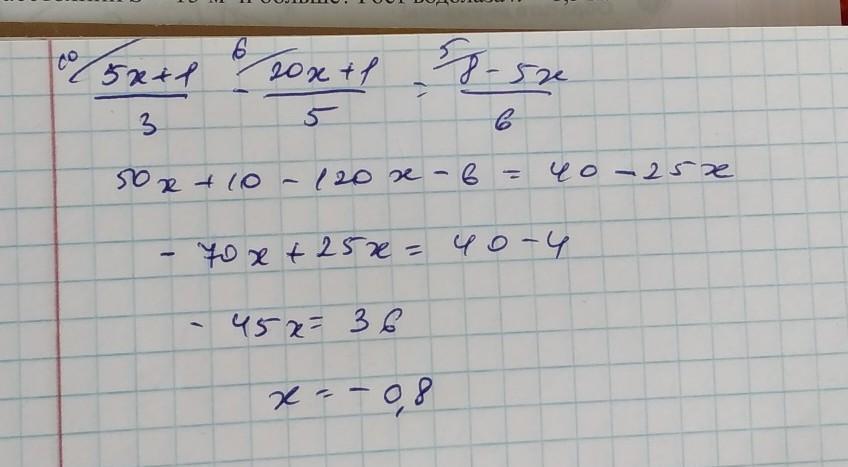 10/ (5x+1)/3 - 6/ (20x+1)/5 = 5/ (8-5x)/6
50x+10-120x-6=40-25x
-70x+25x=40-4
-45x=36
x=-0,8